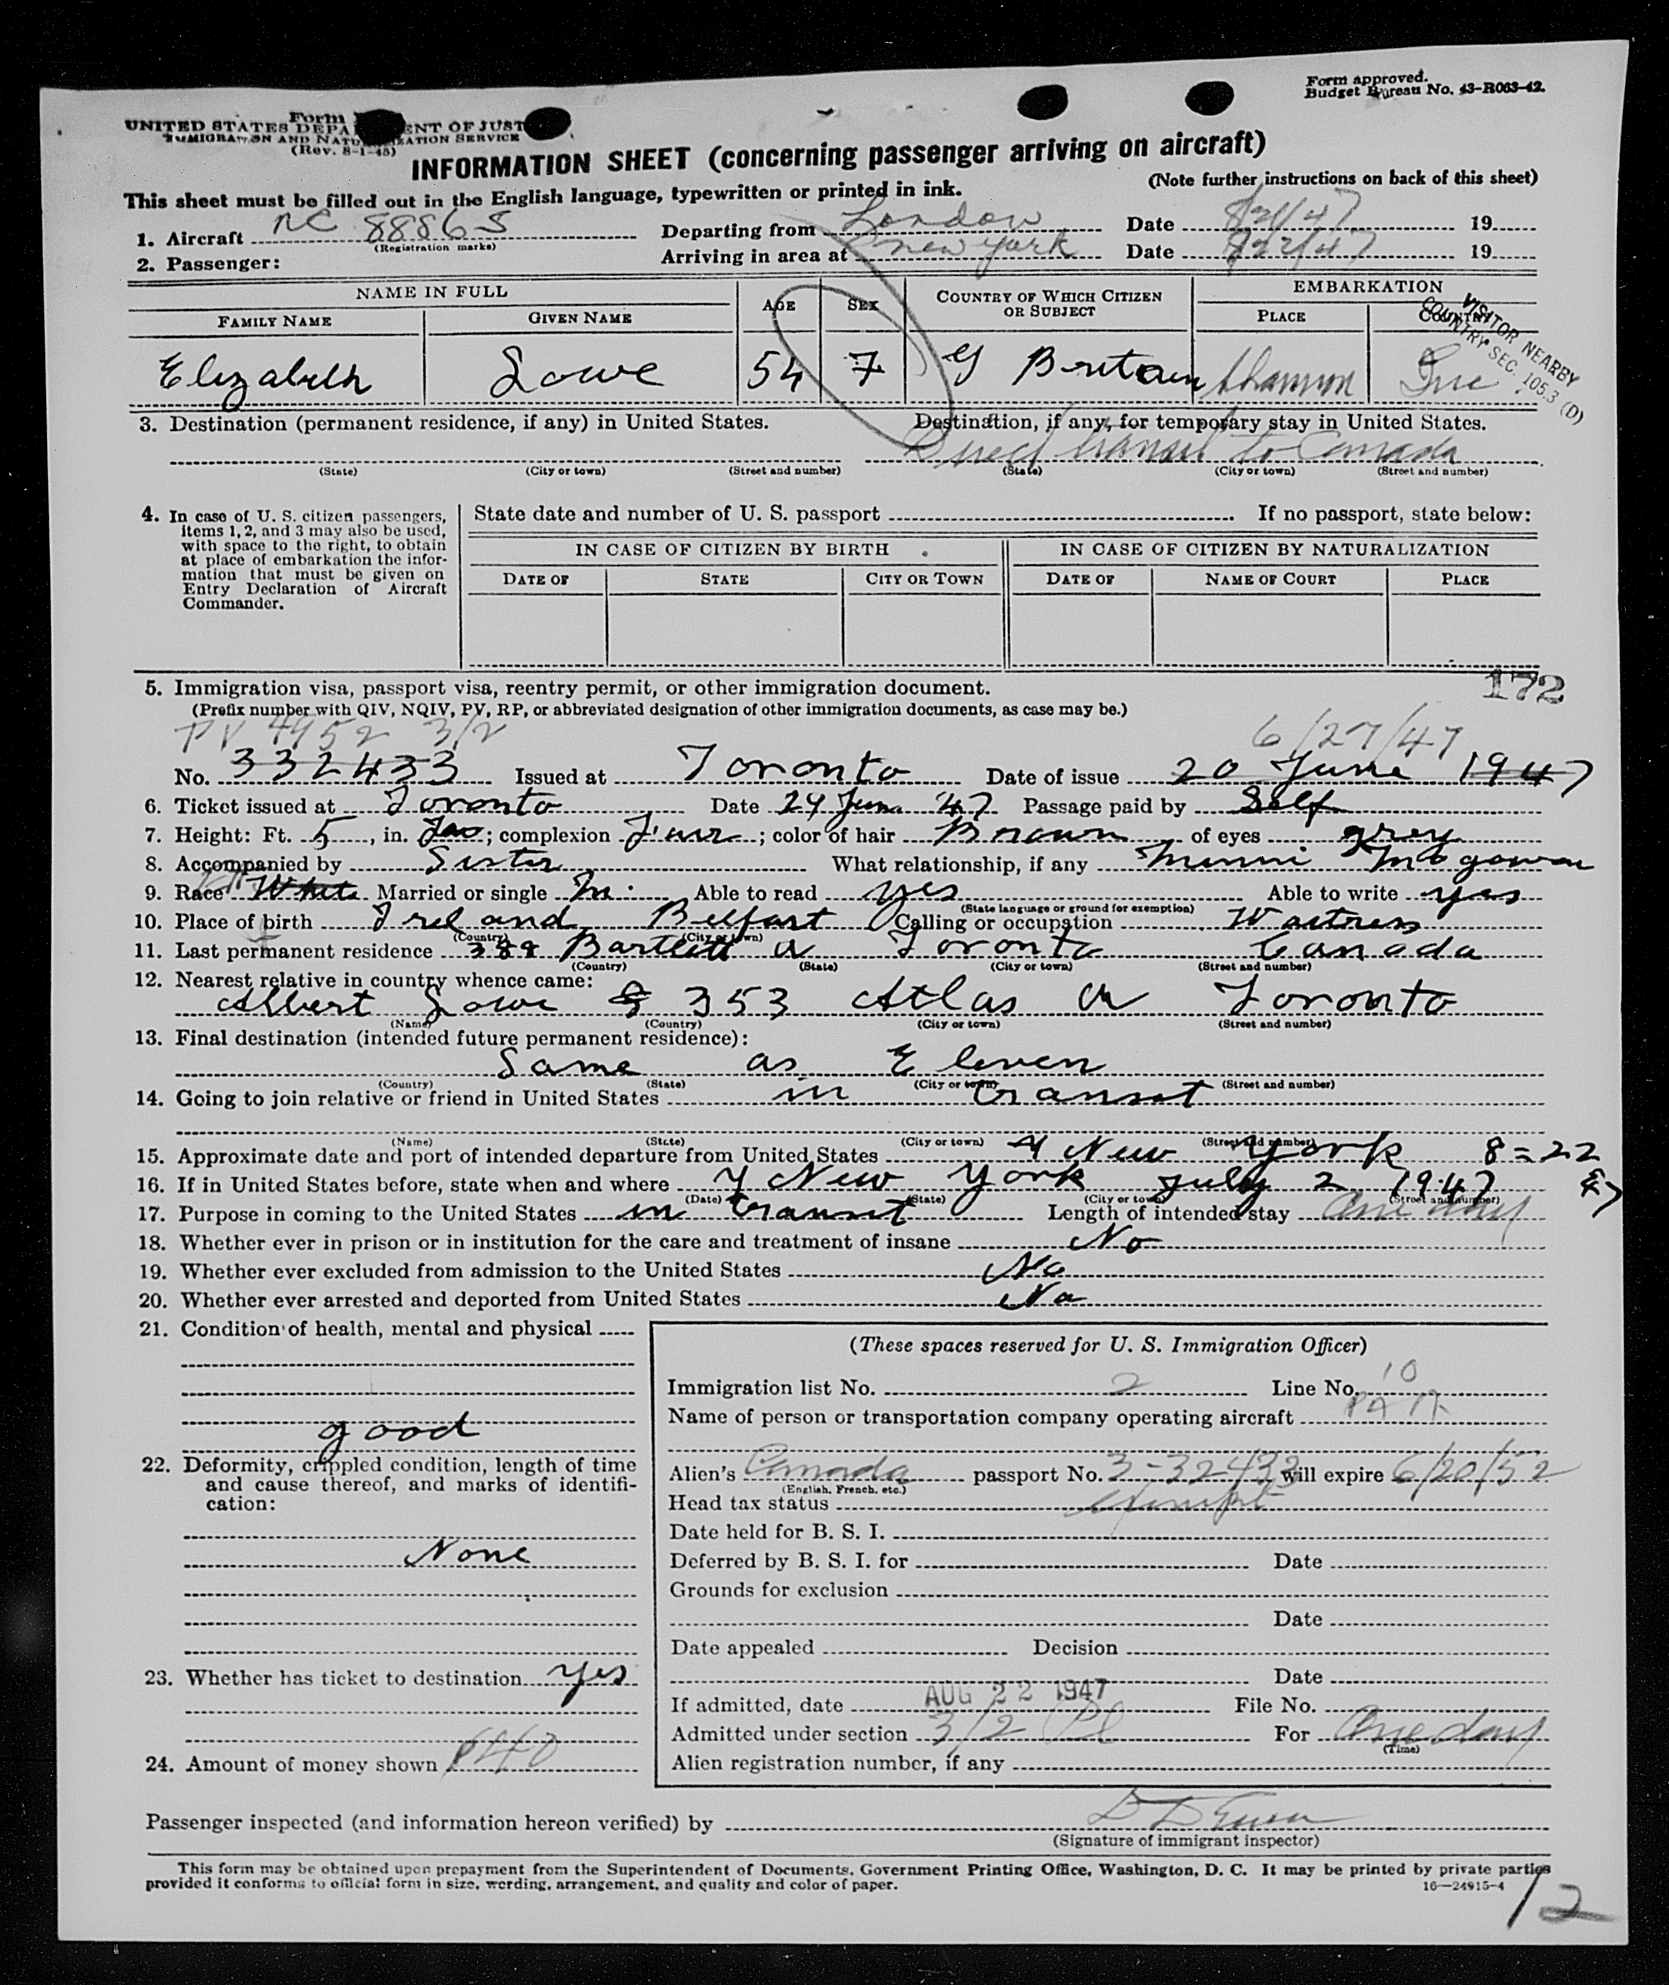 Form approved.
Budget Bureau No. 43-R063-42.
Form
UNITED STATES DEPARTMENT OF JUST
IMMIGRATION AND NATURALIZATION SERVICE
(Rev. 8-1-45)
INFORMATION SHEET (concerning passenger arriving on aircraft)
This sheet must be filled out in the English language, typewritten or printed in ink.
(Note further instructions on back of this sheet)
1. Aircraft NC 88865 Departing from London Date 8/21/47 19
(Registration marks)
2. Passenger: Arriving in area at New York Date 8/22/47 19
NAME IN FULL AGE SEX COUNTRY OF WHICH CITIZEN OR SUBJECT EMBARKATION
FAMILY NAME GIVEN NAME PLACE COUNTRY
VISITOR NEARBY
COUNTRY SEC. 105.3 (D)
Elizabeth Lowe 54 F G Britain Shannon Ire
3. Destination (permanent residence, if any) in United States. Destination, if any, for temporary stay in United States.
Direct transit to Canada
(State) (City or town) (Street and number) (State) (City or town) (Street and number)
4. In case of U. S. citizen passengers, items 1, 2, and 3 may also be used, with space to the right, to obtain at place of embarkation the information that must be given on Entry Declaration of Aircraft Commander.
State date and number of U. S. passport If no passport, state below:
IN CASE OF CITIZEN BY BIRTH IN CASE OF CITIZEN BY NATURALIZATION
DATE OF STATE CITY OR TOWN DATE OF NAME OF COURT PLACE
172
5. Immigration visa, passport visa, reentry permit, or other immigration document.
(Prefix number with QIV, NQIV, PV, RP, or abbreviated designation of other immigration documents, as case may be.)
PV 4952 3/2 6/27/47
No. 332433 Issued at Toronto Date of issue 20 June 1947
6. Ticket issued at Toronto Date 24 June 47 Passage paid by Self
7. Height: Ft. 5, in. Two; complexion Fair; color of hair Brown of eyes grey
8. Accompanied by Sister What relationship, if any Minni McGowan
9. Race White Married or single M. Able to read yes Able to write yes
(State language or ground for exemption)
10. Place of birth Ireland Belfast Calling or occupation Waitress
(Country) (City or town)
11. Last permanent residence 388 Bartlett Av Toronto Canada
(Country) (State) (City or town) (Street and number)
12. Nearest relative in country whence came:
Albert Lowe 353 Atlas Av Toronto
(Name) (Country) (City or town) (Street and number)
13. Final destination (intended future permanent residence):
Same as Eleven
(Country) (State) (City or town) (Street and number)
14. Going to join relative or friend in United States in transit
(Name) (State) (City or town) (Street and number)
15. Approximate date and port of intended departure from United States New York 8=22 47
16. If in United States before, state when and where New York July 2 1947
(Date) (State) (City or town) (Street and number)
17. Purpose in coming to the United States in transit Length of intended stay One day
18. Whether ever in prison or in institution for the care and treatment of insane No
19. Whether ever excluded from admission to the United States No
20. Whether ever arrested and deported from United States No
21. Condition of health, mental and physical
good
22. Deformity, crippled condition, length of time and cause thereof, and marks of identification:
None
23. Whether has ticket to destination yes
24. Amount of money shown $40
(These spaces reserved for U. S. Immigration Officer)
Immigration list No. 2 Line No. 10
Name of person or transportation company operating aircraft PAA
Alien's Canada passport No. 3-32433 will expire 6/20/52
(English, French, etc.)
Head tax status Exempt
Date held for B. S. I.
Deferred by B. S. I. for Date
Grounds for exclusion
Date
Date appealed Decision
Date
If admitted, date AUG 22 1947 File No.
Admitted under section 3/2 For One day
(Time)
Alien registration number, if any
Passenger inspected (and information hereon verified) by
(Signature of immigrant inspector)
This form may be obtained upon prepayment from the Superintendent of Documents, Government Printing Office, Washington, D. C. It may be printed by private parties
provided it conforms to official form in size, wording, arrangement, and quality and color of paper.
16—24915-4
12